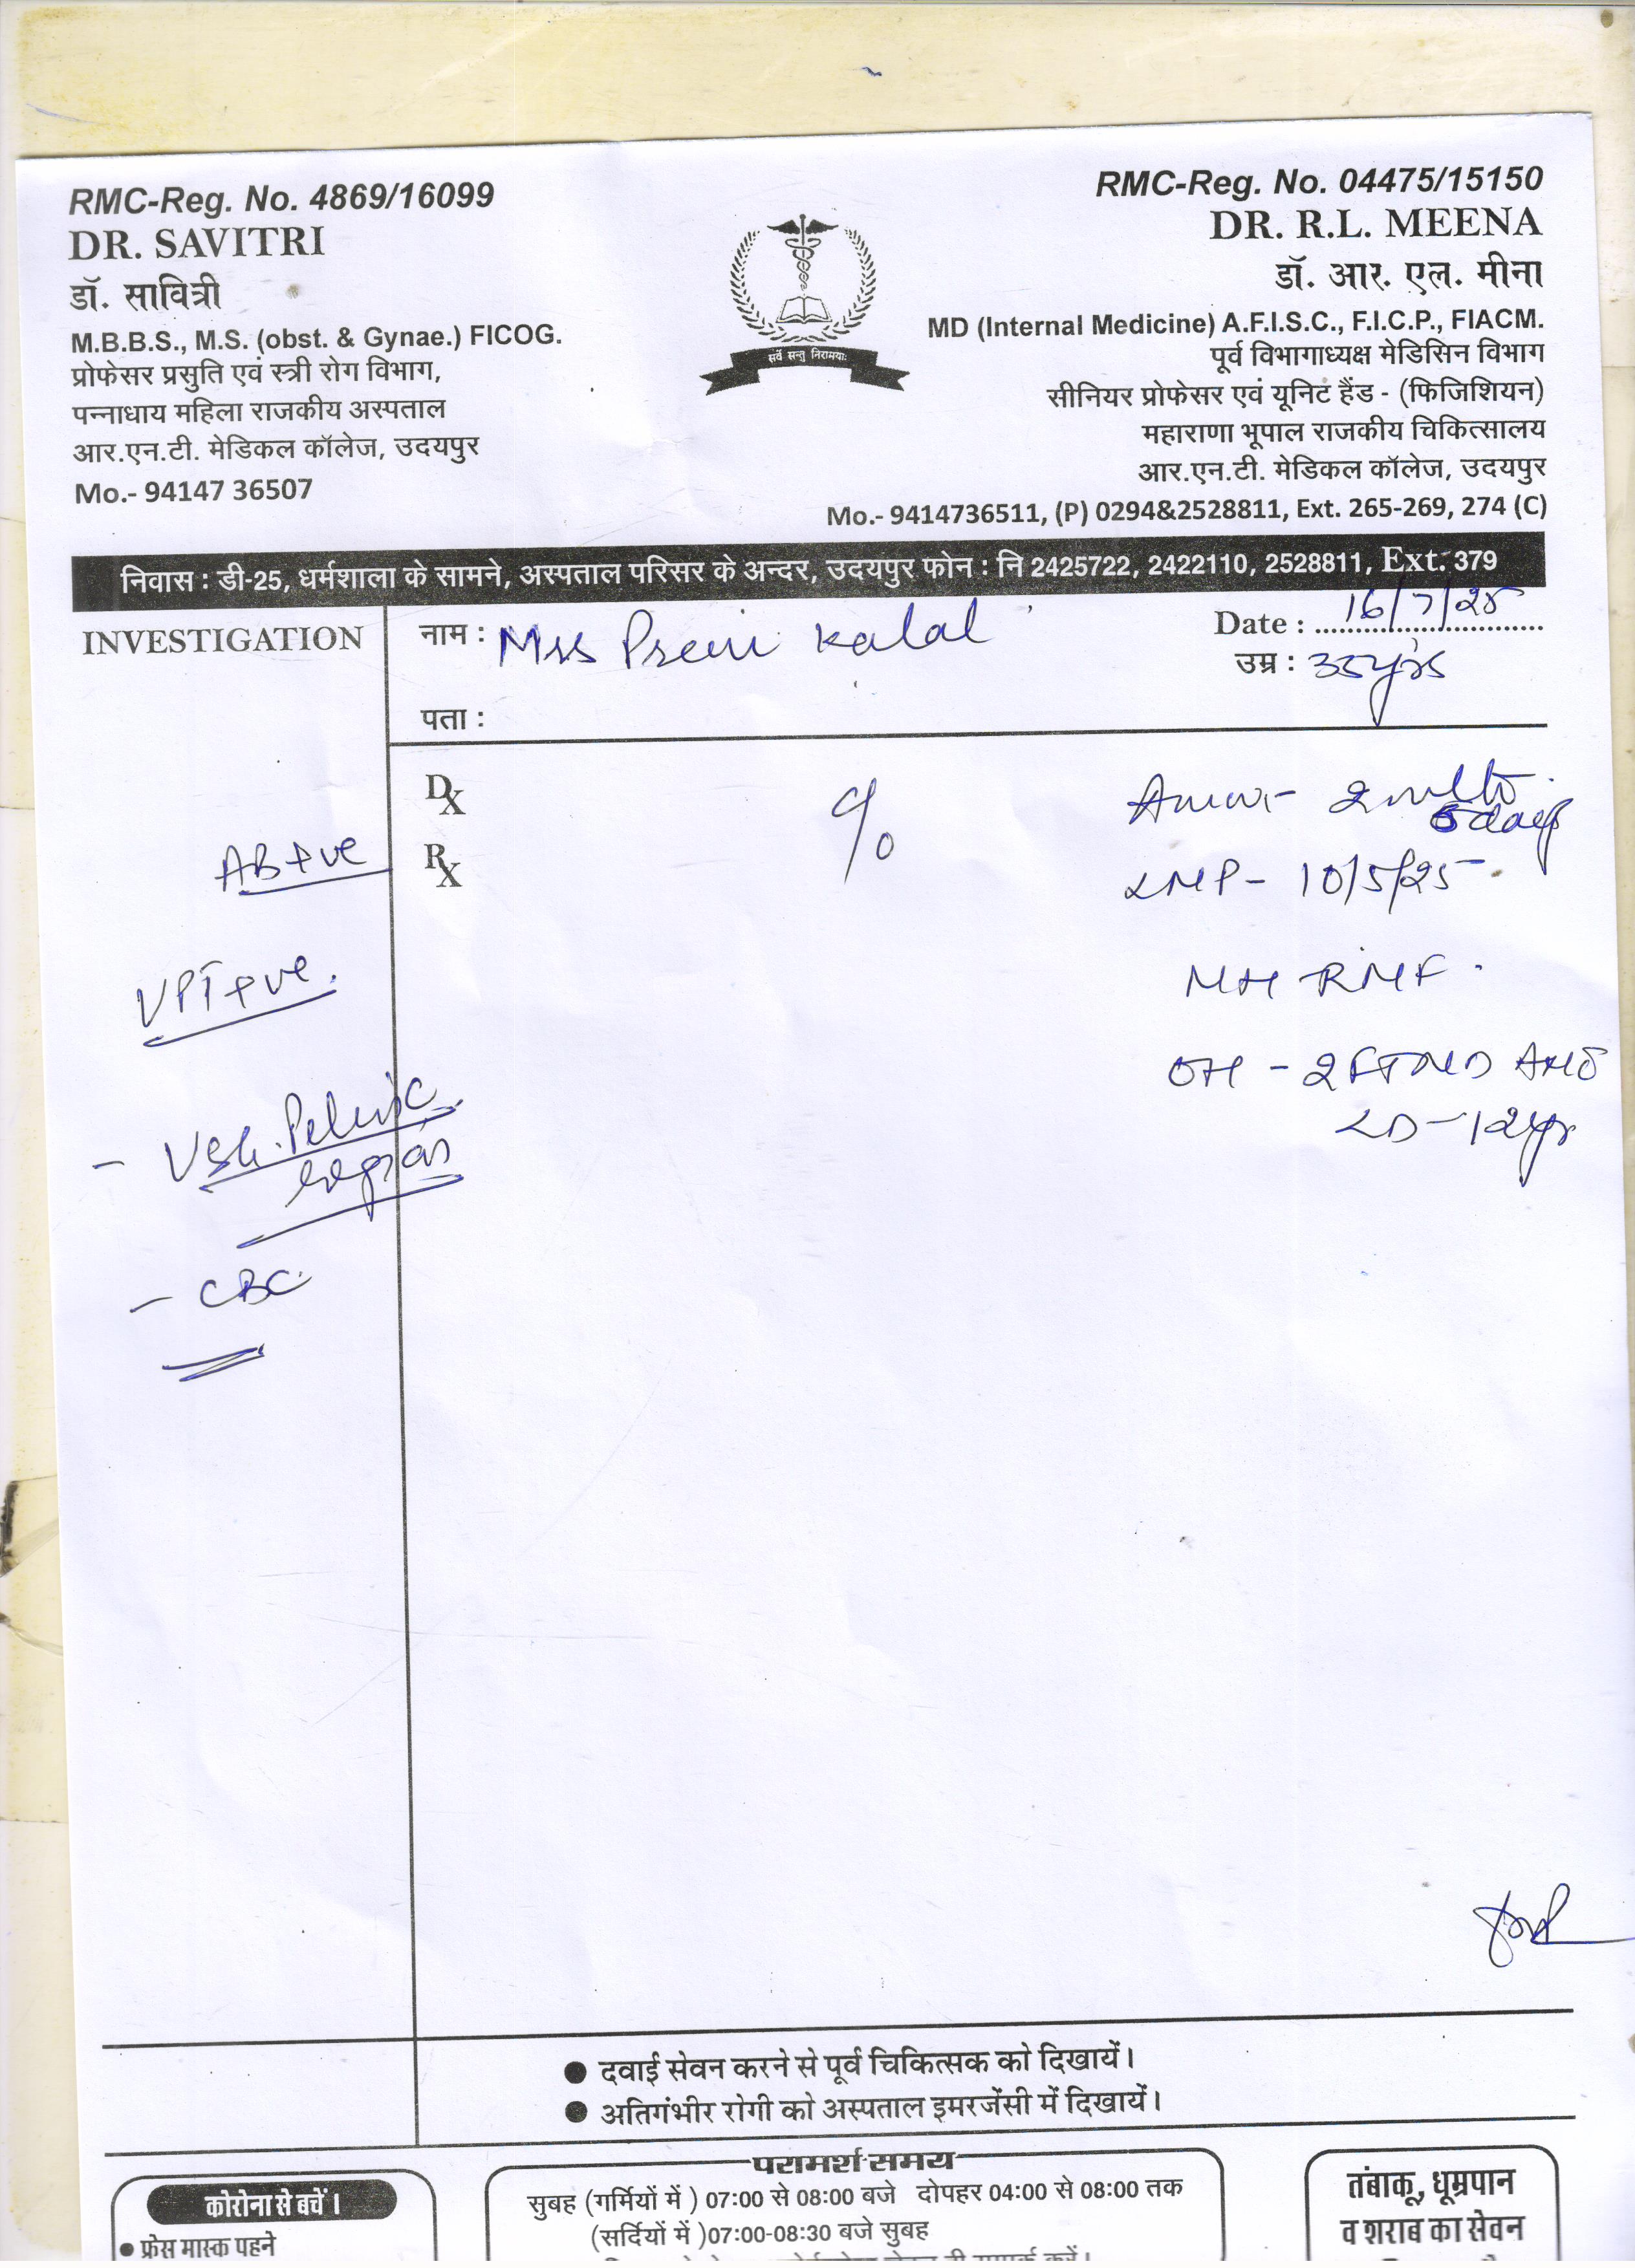 RMC-Reg. No. 4869/16099
DR. SAVITRI
डॉ. सावित्री
M.B.B.S., M.S. (obst. & Gynae.) FICOG.
प्रोफेसर प्रसुति एवं स्त्री रोग विभाग,
पन्नाधाय महिला राजकीय अस्पताल
आर.एन.टी. मेडिकल कॉलेज, उदयपुर
Mo.- 94147 36507
सर्वे सन्तु निरामयाः
RMC-Reg. No. 04475/15150
DR. R.L. MEENA
डॉ. आर. एल. मीना
MD (Internal Medicine) A.F.I.S.C., F.I.C.P., FIACM.
पूर्व विभागाध्यक्ष मेडिसिन विभाग
सीनियर प्रोफेसर एवं यूनिट हैंड - (फिजिशियन)
महाराणा भूपाल राजकीय चिकित्सालय
आर.एन.टी. मेडिकल कॉलेज, उदयपुर
Mo.- 9414736511, (P) 0294&2528811, Ext. 265-269, 274 (C)
निवास : डी-25, धर्मशाला के सामने, अस्पताल परिसर के अन्दर, उदयपुर फोन : नि 2425722, 2422110, 2528811, Ext. 379
INVESTIGATION
नाम : Mrs Kalal
Date : 16/7/25
उम्र : yrs
पता :
Dx
Rx
c/o
2
5 days
LMP - 10/5/25
MH - RMF.
OH - 2 FTND
LD - 12yr
AB+ve
VPT+ve.
- Pelvic
region
- CBC
● दवाई सेवन करने से पूर्व चिकित्सक को दिखायें।
● अतिगंभीर रोगी को अस्पताल इमरजेंसी में दिखायें।
कोरोना से बचें।
● फ्रेस मास्क पहने
परामर्श समय
सुबह (गर्मियों में ) 07:00 से 08:00 बजे दोपहर 04:00 से 08:00 तक
(सर्दियों में )07:00-08:30 बजे सुबह
तंबाकू, धूम्रपान
व शराब का सेवन